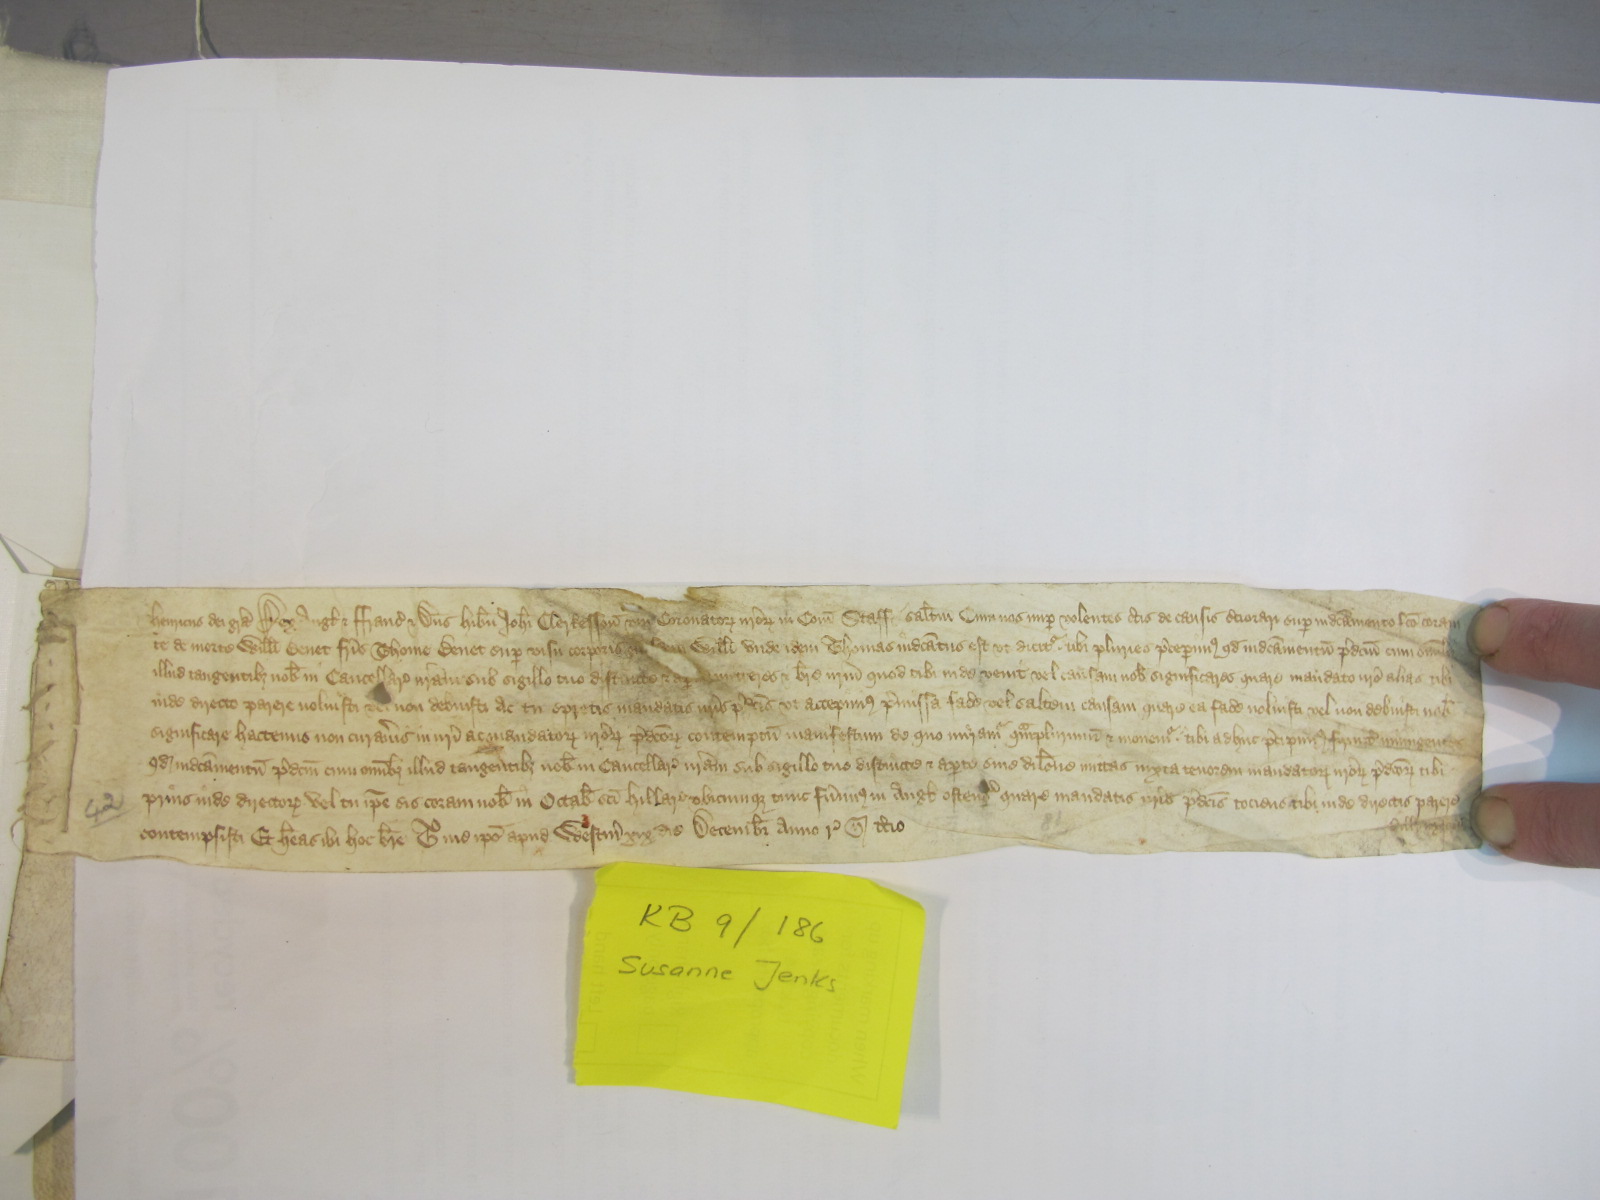 Henricus dei gra Rex Angl & Franc & Dns Hibn Johi Clerkesson vni Coronator nror in Com Staff saltm Cum nos nup volentes ctis de causis ctiorari sup indcamento fco coram
te de morte Willi Benet fris Thome Benet sup visu corporis Willi vnde idem Thomas indcatus est vt dicit tibi pluries pcepimus qd indcamentu pdcm cum omibz
illud tangentibz nob in Cancellar nram sub sigillo tuo distincte & mitteres & bre nrm quod tibi inde venit vel causam nob significares quare mandato nro alias tibi
inde directo parere noluisti vel non debuisti Ac tu spretis mandatis nris pdcis vt accepimus pmissa face vel saltem causam quare ea face noluisti vel non debuisti nob
significare hactenus non curasti in nri ac mandator nror pdcor contemptu manifestum de quo miram qmplurimu & movem tibi adhuc pcipimus firmit iniungentes
qd indcamentu pdcm cum omibz illud tangentibz nob in Cancellar nram sub sigillo tuo distincte & apte sine dilone mittas iuxta tenorem mandator nror pdcor tibi
prius inde director Vel tu ipe sis coram nob in Octab sci Hillar vbicumqz tunc fuimus in Angl ostens quare mandatis nris pdcis tociens tibi inde directis parere
contempsisti Et heas ibi hoc bre T me ipo apud Westm xix die Decembr Anno r n tcio
42
81
KB 9/186
Susanne Jenks